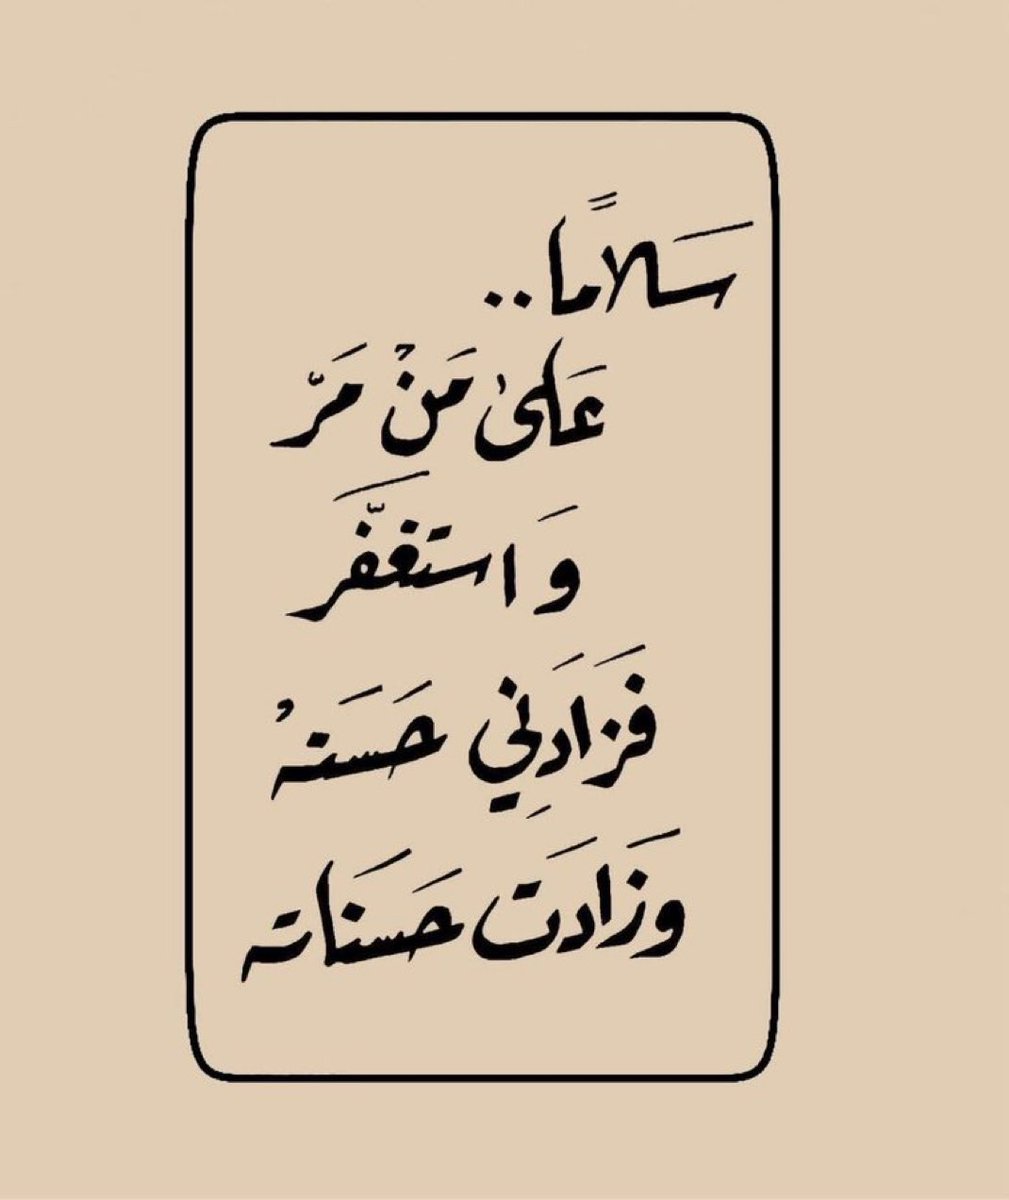 سَلاماً..
عَلىٰ مَنْ مَرَّ
وَ استغفَّرَ
فَزَادَنِي حَسَنهُ
وَزَادَت حَسنَاته